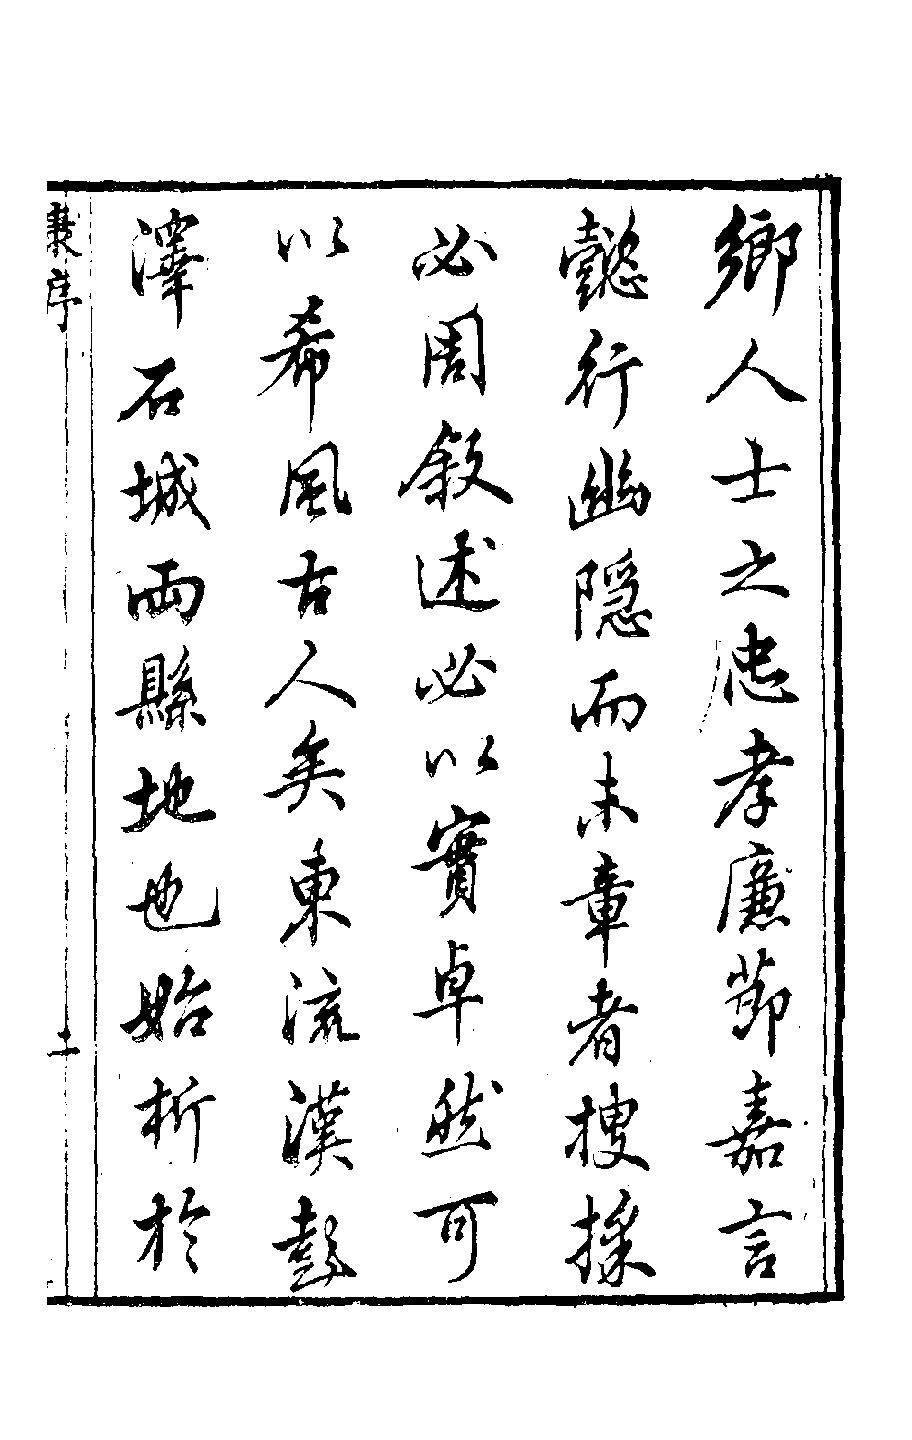 鄉人士之忠孝廉節嘉言
懿行幽隱而未章者搜採
必周叙述必以實卓然可
以希風古人矣東流漢彭
澤石城兩縣地也始析於
序
二